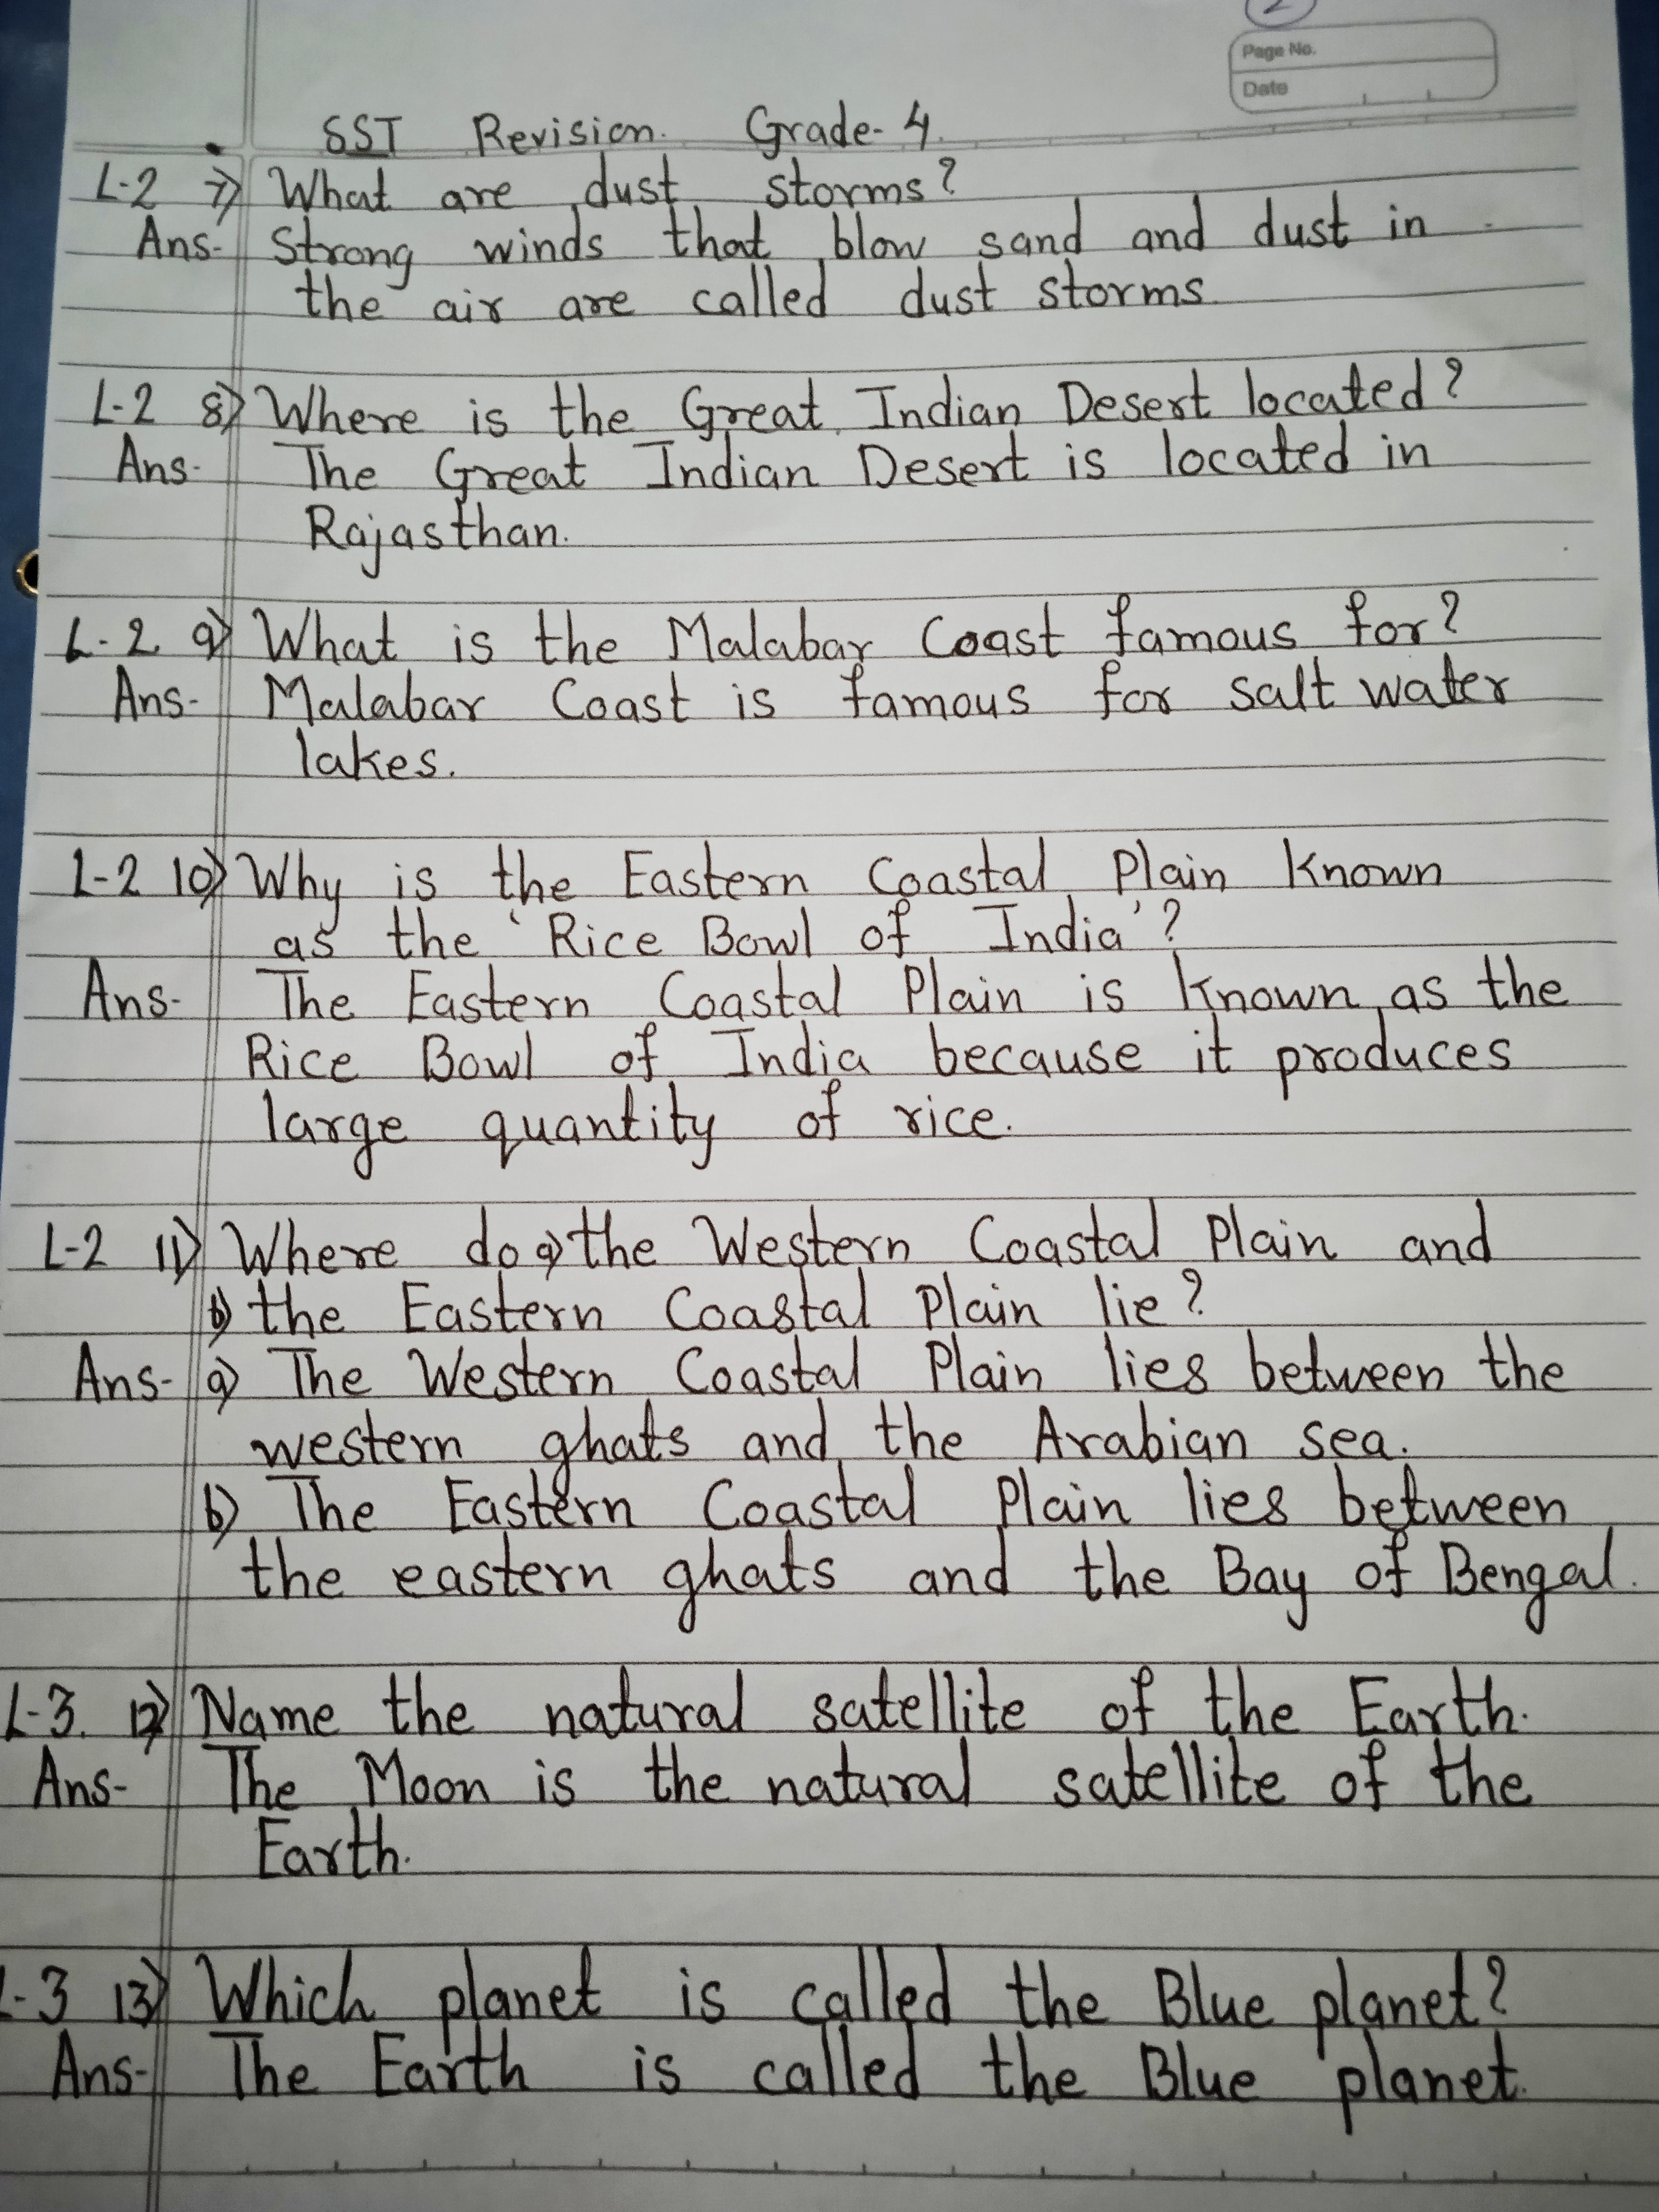 2
Page No.
Date
SST Revision. Grade-4.
L-2 7) What are dust storms?
Ans- Strong winds that blow sand and dust in
the air are called dust storms.
L-2 8) Where is the Great Indian Desert located?
Ans- The Great Indian Desert is located in
Rajasthan.
L-2. 9) What is the Malabar Coast famous for?
Ans- Malabar Coast is famous for salt water
lakes.
L-2 10) Why is the Eastern Coastal Plain known
as the 'Rice Bowl of India'?
Ans- The Eastern Coastal Plain is known as the
Rice Bowl of India because it produces
large quantity of rice.
L-2 11) Where do a) the Western Coastal Plain and
b) the Eastern Coastal Plain lie?
Ans- a) The Western Coastal Plain lies between the
western ghats and the Arabian sea.
b) The Eastern Coastal Plain lies between
the eastern ghats and the Bay of Bengal.
L-3. 12) Name the natural satellite of the Earth.
Ans- The Moon is the natural satellite of the
Earth.
L-3 13) Which planet is called the Blue planet?
Ans- The Earth is called the Blue planet.